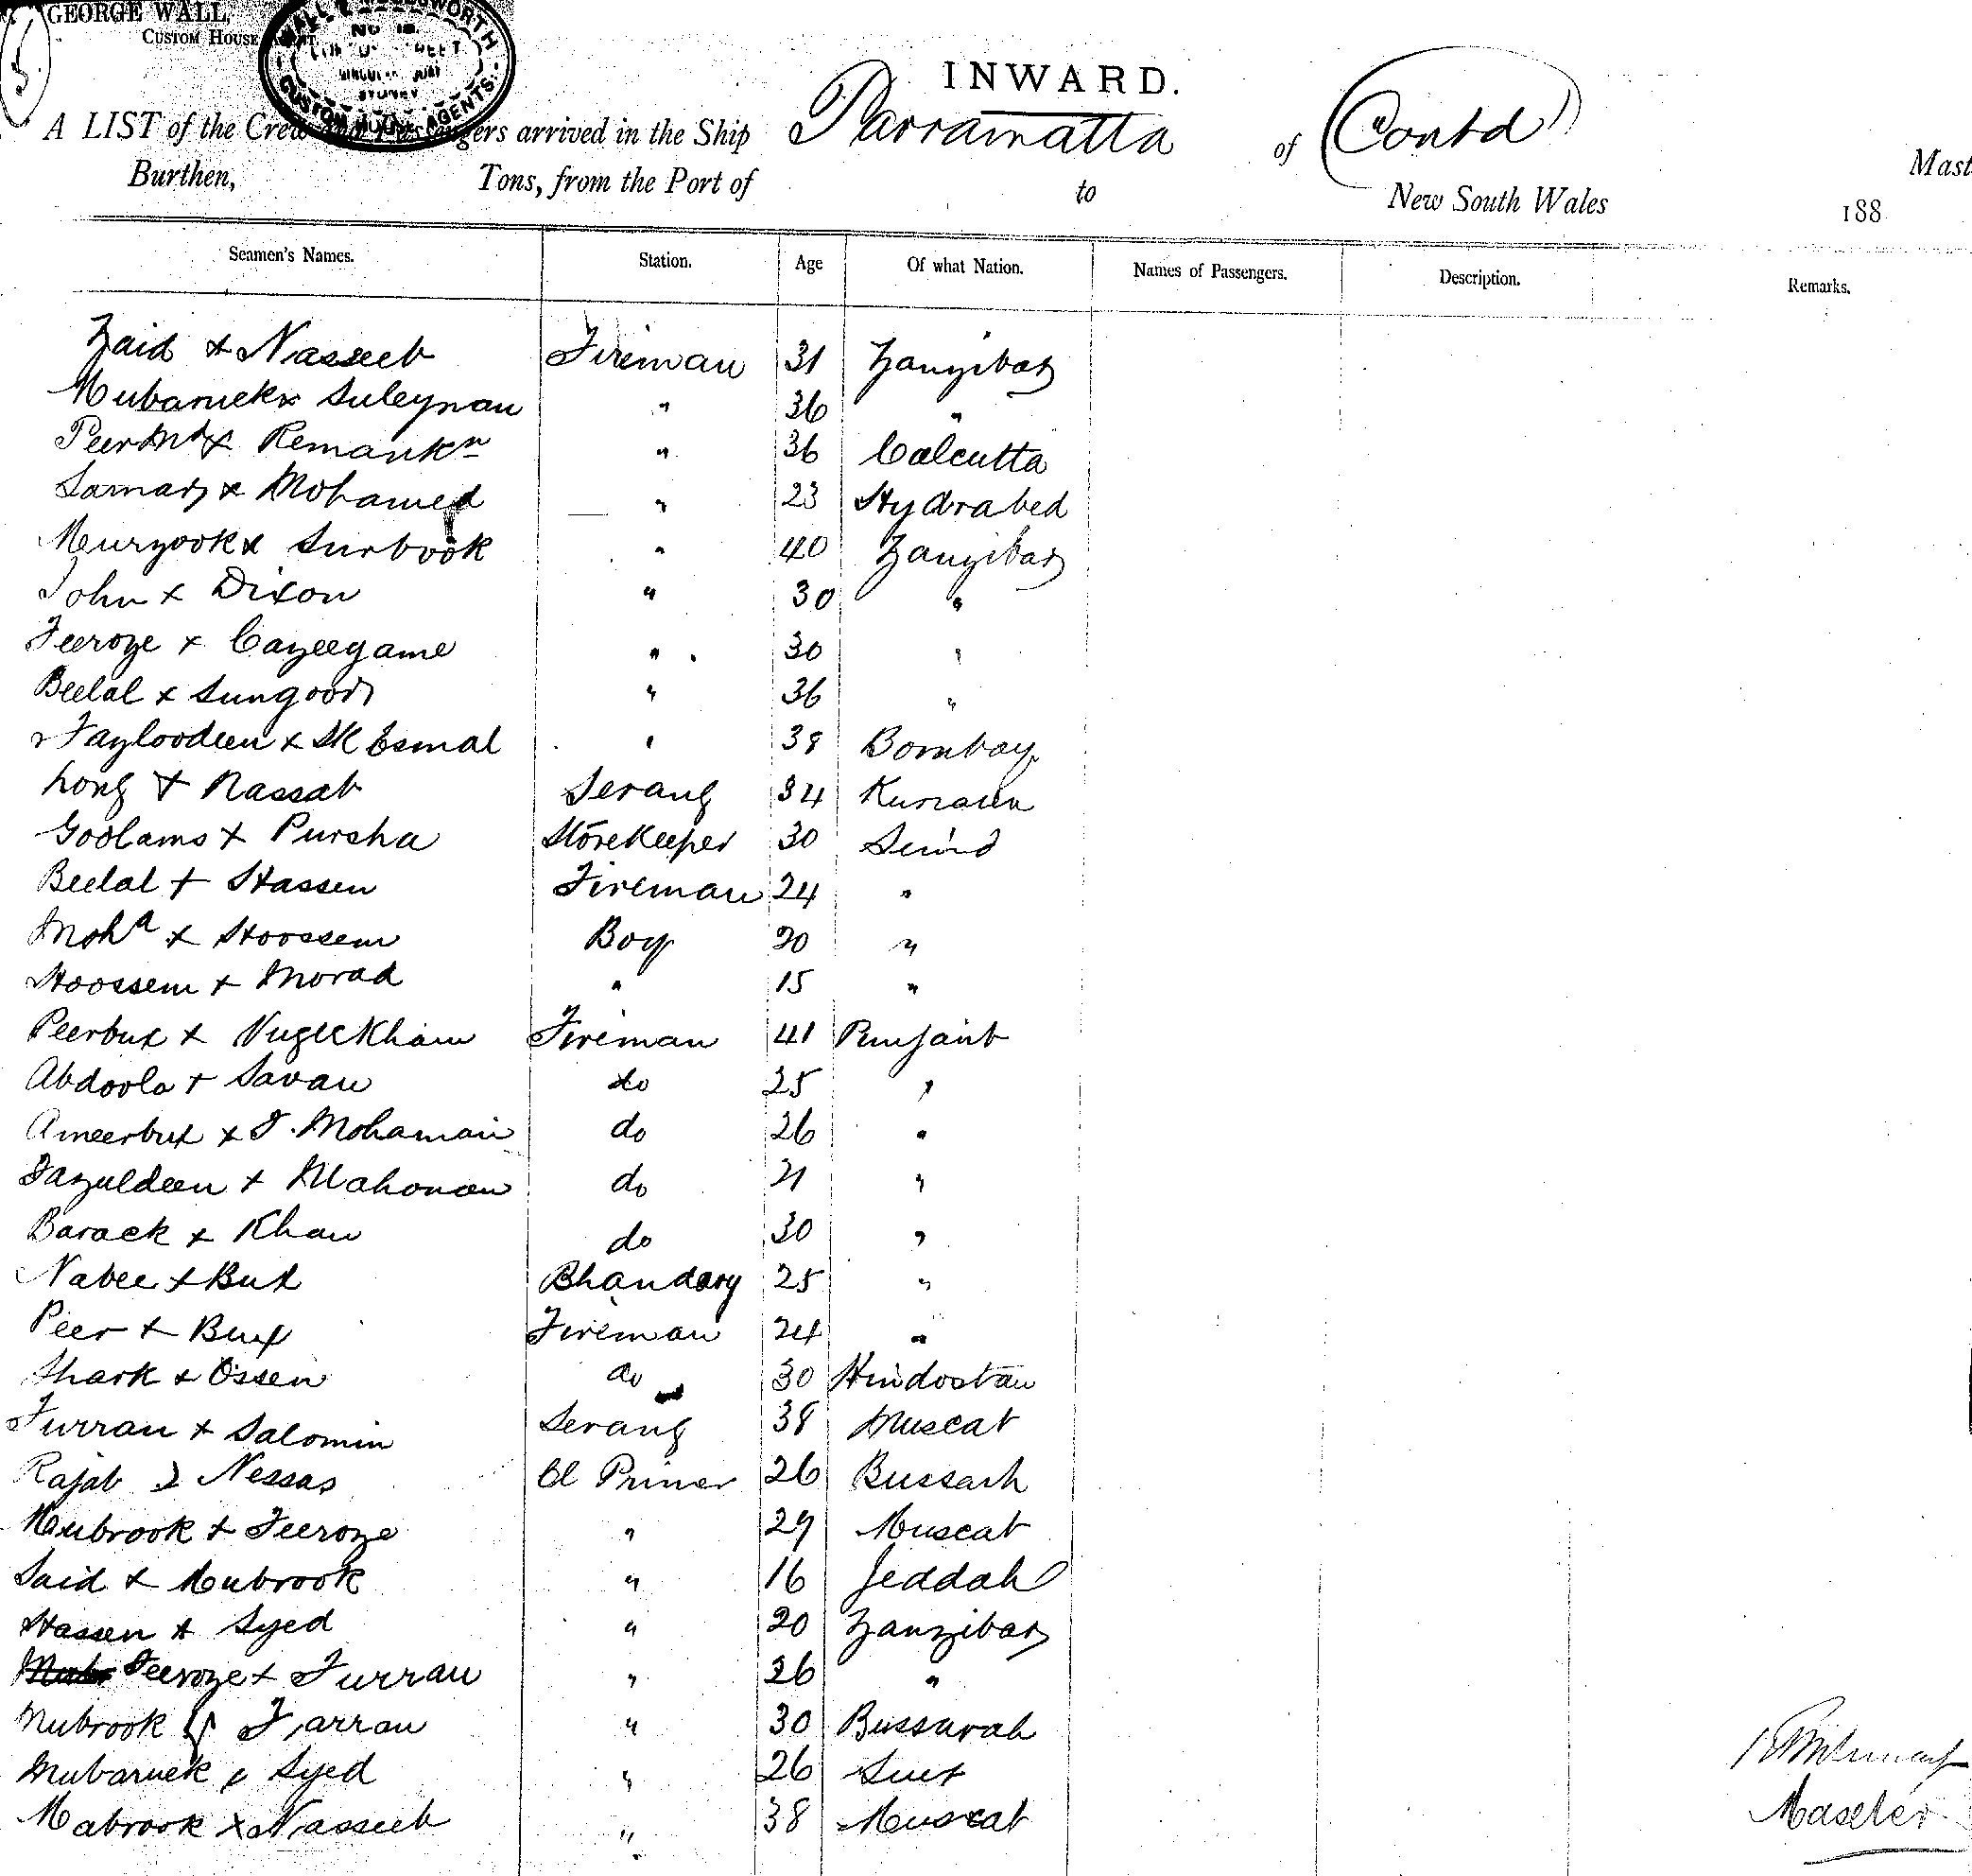 5
GEORGE WALL,
CUSTOM HOUSE AGENT
WORTH
No 12
SYDNEY
CUSTOM HOUSE AGENTS
INWARD.
A LIST of the Crew and Passengers arrived in the Ship Parramatta of (Contd) Mast
Burthen, Tons, from the Port of to New South Wales 188
Seamen's Names. Station. Age Of what Nation. Names of Passengers. Description. Remarks.
Zaid x Nasseeb Fireman 31 Zanzibar
Mubaruck x Suleyman " 36 "
Peer Md x Remankn " 36 Calcutta
Samar x Mohamed " 23 Hydrabed
Murzook x Surbook " 40 Zanzibar
John x Dixon " 30 "
Feeroze x Cazeegame " 30 "
Beelal x Sungoor " 36 "
Fayloodeen x Sk Esmal " 38 Bombay
Long x Nassab Serang 34
Goolams x Pursha Storekeeper 30 Scind
Beelal x Hassen Fireman 24 "
Mohd x Hoossem Boy 20 "
Hoossem x Morad " 15 "
Peerbux x Fireman 41 Punjaub
Abdoola x Savan do 25 "
Ameerbux x J. do 26 "
Fazuldeen x do 21 "
Barack x Khan do 30 "
Nabee x Bux Bhandary 25 "
Peer x Bux Fireman 24 "
Shark x Ossen do 30 Hindostan
Furran x Salomin Serang 38 Muscat
Rajab x Nessas Cl Primer 26 Bussarh
Mubrook x Feeroze " 29 Muscat
Said x Mubrook " 16 Jeddah
Hassen x Syed " 20 Zanzibar
Feeroze x Furran " 26 "
Mubrook x Farran " 30 Bussurah
Mubaruck x Syed " 26 Suez
Mabrook x Nasseeb " 38 Muscat
Master